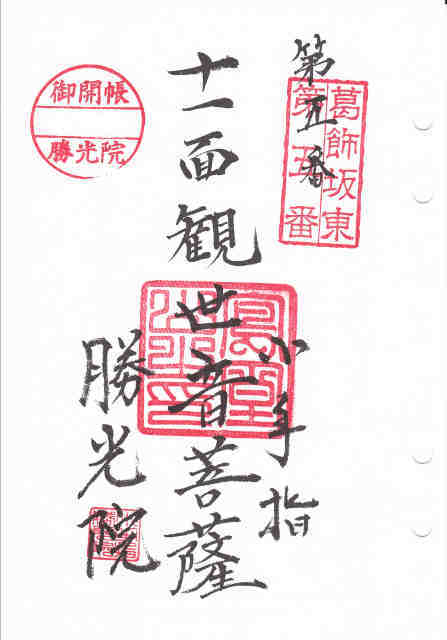 葛飾坂東
第五番
第五番
小手指
十一面観世音菩薩
勝光院
御開帳
勝光院